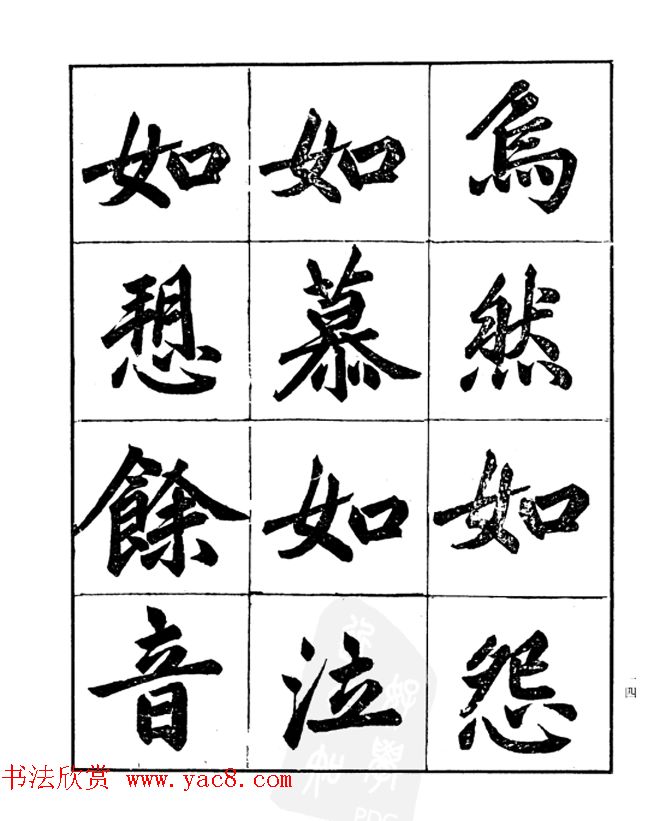 烏然如怨
如慕如泣
如愬餘音
一四
书法欣赏 www.yac8.com
PDG